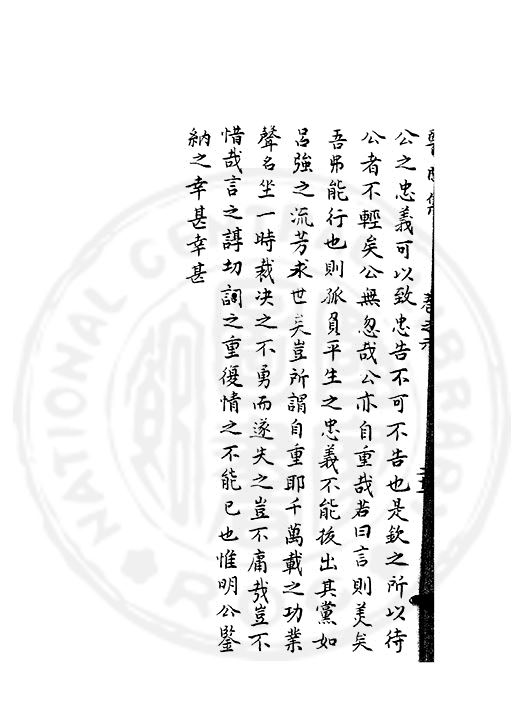 公之忠義可以致忠告不可不告也是欽之所以待
公者不輕矣公無忽哉公亦自重哉若曰言則美矣
吾弗能行也則孤負平生之忠義不能拔出其黨如
呂強之流芳永世矣豈所謂自重耶千萬載之功業
聲名坐一時裁決之不勇而遂失之豈不庸哉豈不
惜哉言之諄切詞之重復情之不能已也惟明公鑒
納之幸甚幸甚